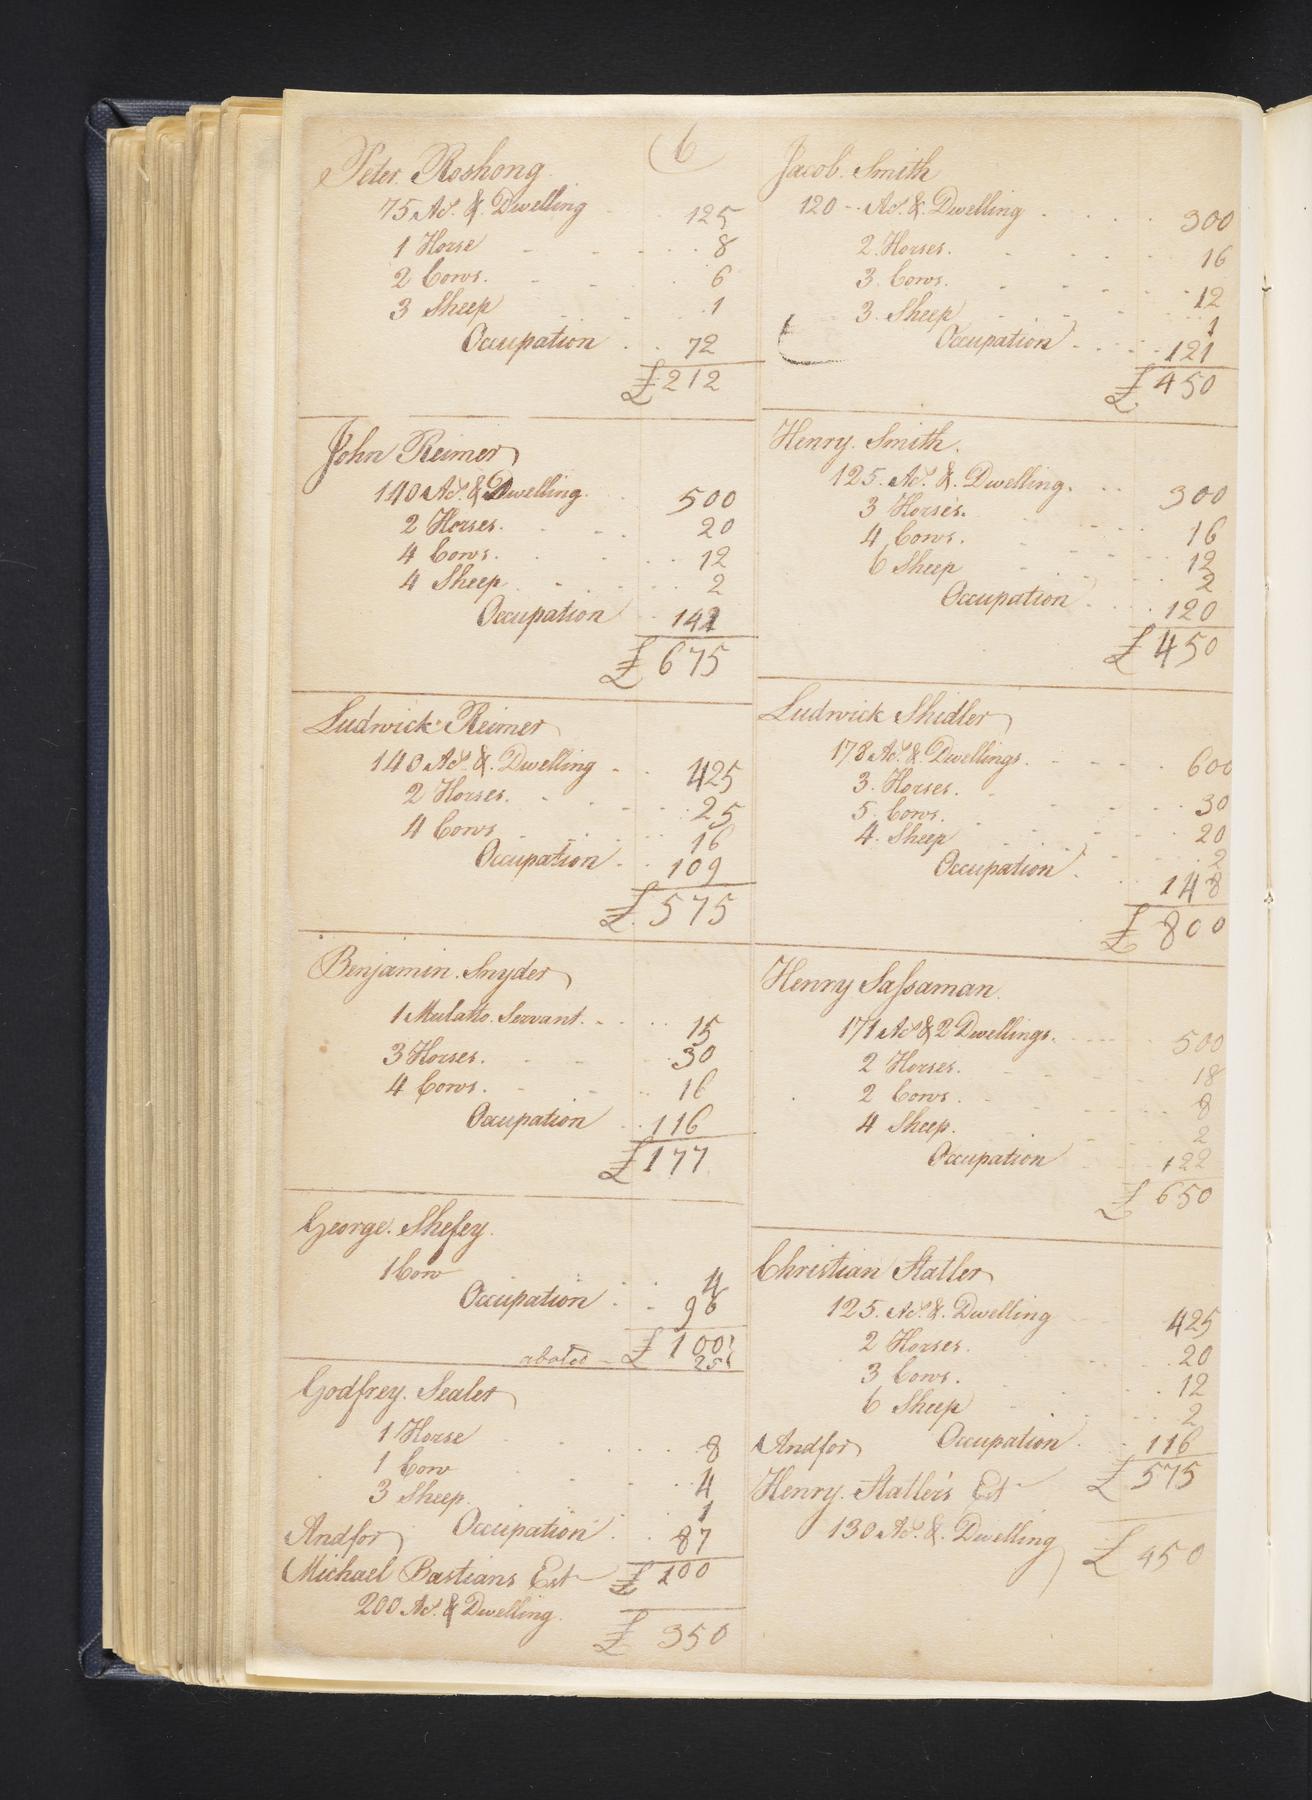 (6
Peter. Roshong.
75 Acs. &. Dwelling 125
1 Horse 8
2 Cows. 6
3 Sheep 1
Occupation 72
£ 212
John Reimer
140 Acs. & Dwelling. 500
2 Horses. 20
4 Cows. 12
4 Sheep 2
Occupation 141
£ 675
Ludwick Reimer
140 Acs. &. Dwelling 425
2 Horses. 25
4 Cows 16
Occupation 109
£ 575
Benjamin. Snyder
1 Mulatto. Servant. 15
3 Horses. 30
4 Cows. 16
Occupation 116
£ 177
George. Shefey.
1 Cow 4
Occupation 96
£ 100
abated 25
Godfrey. Sealer
1 Horse 8
1 Cow 4
3 Sheep. 1
Occupation 87
£ 100
And for
Michael Bastians Est
200 Acs. & Dwelling.
£ 350
Jacob. Smith
120 Acs. &. Dwelling 300
2. Horses. 16
3. Cows. 12
3. Sheep 1
Occupation 121
£ 450
Henry. Smith.
125. Acs. &. Dwelling. 300
3 Horses. 16
4 Cows. 12
6 Sheep 2
Occupation 120
£ 450
Ludwick Shidler
178 Acs. &. Dwellings. 600
3. Horses. 30
5. Cows. 20
4. Sheep 2
Occupation 148
£ 800
Henry Saſsaman.
171 Acs & 2 Dwellings. 500
2 Horses. 18
2 Cows. 8
4 Sheep. 2
Occupation 122
£ 650
Christian Statler
125. Acs. &. Dwelling 425
2 Horses. 20
3 Cows. 12
6 Sheep 2
Occupation 116
£ 575
And for
Henry. Statler's Est
130 Acs. &. Dwelling
£ 450